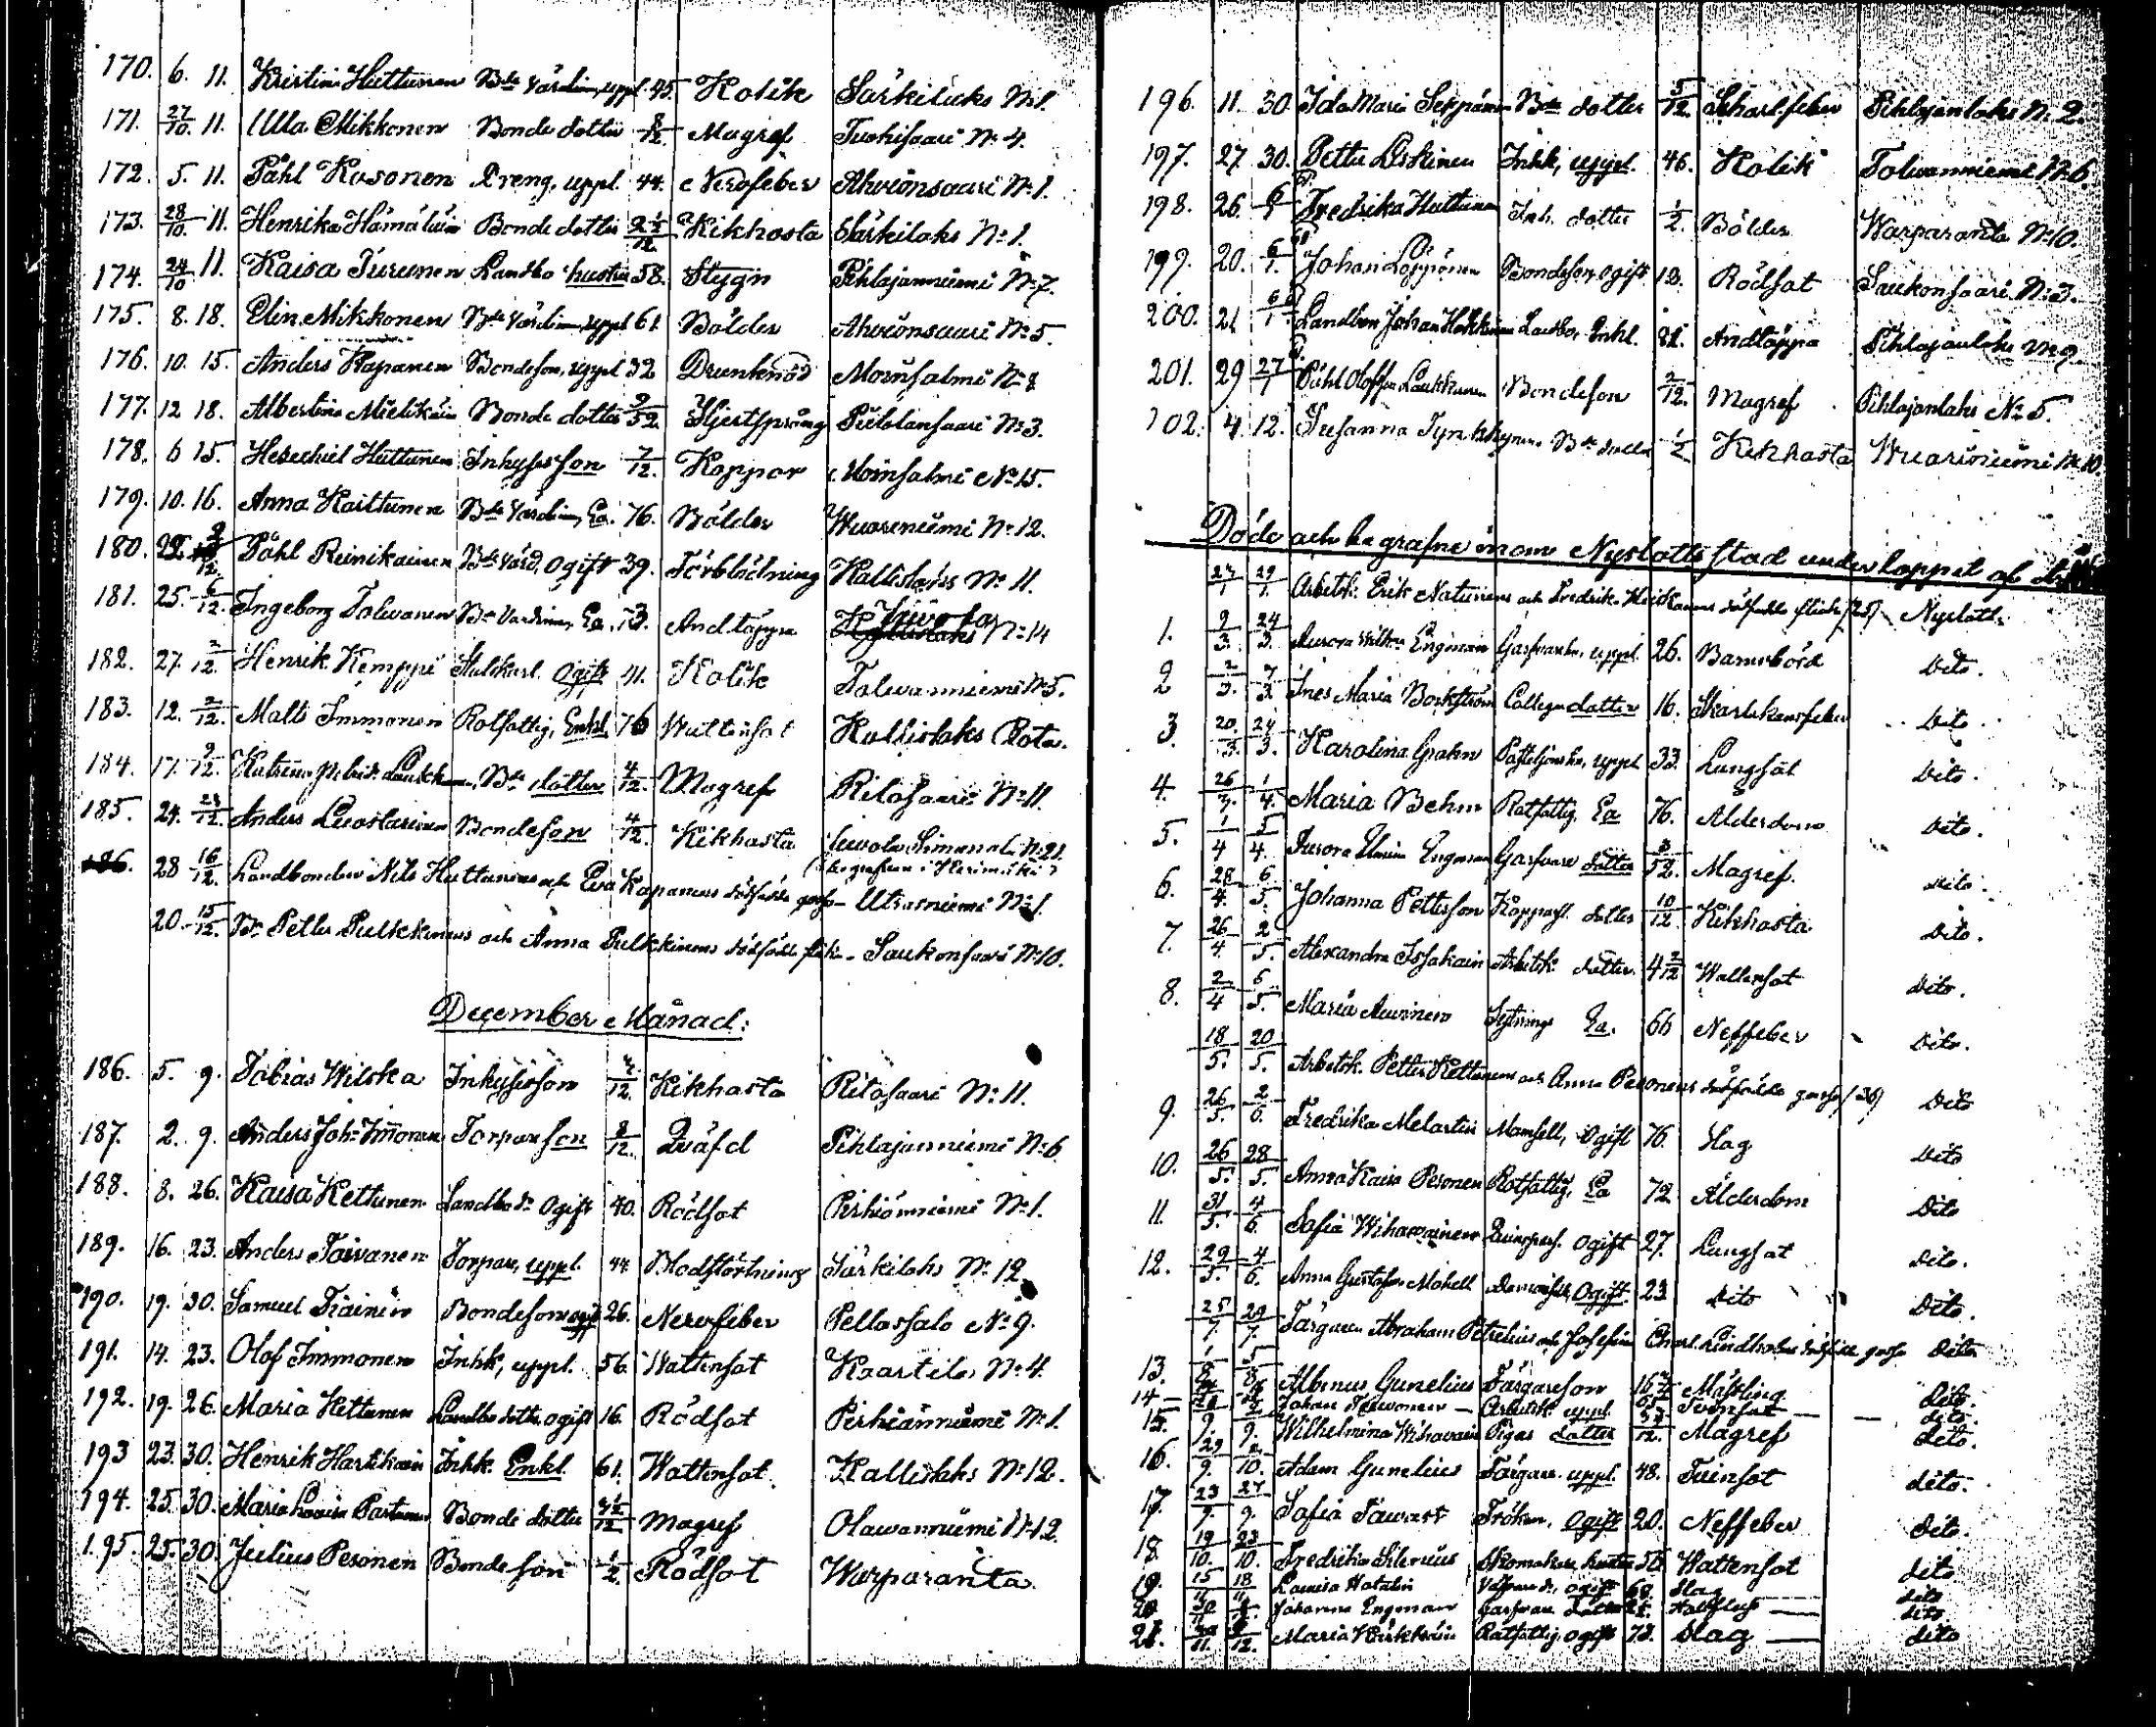 170. 6. 11. Kristina Huttunen Bde Värdin, uppl. 45. Kolik Särkilaks N:1.
171. 27/10. 11. Ulla Mikkonen Bonde dotter 8/12. Magref Tuohisaari N:4.
172. 5. 11. Påhl Kosonen Dreng, uppl. 44. Nervfeber Ahvionsaari N:1.
173. 28/10. 11. Henrika Hämäläin Bonde dotter Kikhosta Särkilaks N:1.
174. 24/10 11. Kaisa Turunen Landbo hustru 58. Stygn Pihlajaniemi N:7.
175. 8. 18. Elin Mikkonen Bde Värdin, uppl 61. Bölder Ahvionsaari N:5.
176. 10. 15. Anders Kapanen Bondeson, uppl 32 Drunknad Moinsalmi N:8
177. 12 18. Albertina Mielikäin Bonde dotter 9/52. Hjertsprång Pietolansaari N:3.
178. 6 15. Hesechiel Huttunen Inhyses son 7/12. Koppor Moinsalmi N:15.
179. 10. 16. Anna Kaittunen Bde Värdin, Ea. 76. Bölder Wuoreniemi N:12.
180. 22. 9/12 Påhl Reinikainen Bde Värd, Ogift 39. Förblödning Kallislaks N:11.
181. 25. 6/12. Ingeborg Tolvanen Bde Värdin, Ea. 73. Andtäppa N:14
182. 27. 2/12. Henrik Kemppi Stallkarl. Ogift 41. Kolik Tolvanniemi N:5.
183. 12. 2/12. Matts Immonen Rotfattig, Enkl. 76 Wattusot Kallislaks Rota.
184. 17. 9/12. Katrina Laukkanen, Bde dotter 4/12. Magref Ritosaari N:11.
185. 24. 12. Anders Luostarinen Bondeson 4/12. Kikhosta N:21.
(begrafven i Kerimäki)
186. 28 16/12. Landbonden Nils Huttunens och Eva Kapanens dödfödde gosse – Utrasniemi N:1.
20. 15/12. Bn Petter Pulkkinens och Anna Pulkkinens dödfödde flicka – Saukonsaari N:10.
December Månad:
186. 5. 9. Tobias Wilska Inhysesson 12. Kikhosta Ritosaari N:11.
187. 2. 9. Anders Joh: Immonen Torpareson 8/12. Qväfd Pihlajaniemi N:6
188. 8. 26. Kaisa Kettunen Landbo dr Ogift 40. Rödsot Pirhiänniemi N:1.
189. 16. 23. Anders Toivanen Torpare, uppl. 44 Blodstörtning Särkilaks N:12
190. 19. 30. Samuel Kainen Bondeson ogift 26. Nervfeber Pellossalo N:9.
191. 14. 23. Olof Immonen Inhk, uppl. 56. Wattensot Kaartila N:4.
192. 19. 26. Maria Kettunen Landbo dotter, ogift 16. Rödsot Pirhiänniemi N:1.
193 23. 30. Henrik Hartikain Inhk. Enkl. 61. Wattensot. Kallislaks N:12.
194. 25. 30. Maria Lovisa Partanen Bonde dotter Magref Olavanniemi N:12.
195. 25. 30. Julius Pesonen Bonde son 1/2. Rödsot Warparanta.
196. 11. 30. Ida Maria Seppänen Bde dotter 5/12. Scharl.feber Pihlajanlaks N:2.
197. 27. 30. Petter Liskinen Inhk, uppl. 46. Kolik Tolvanniemi N:6.
198. 26. 6/1 Fredrika Huttunen Inh. dotter 1/2. Bölder Warparanta N:10.
199. 20. 6/1. Johan Loppönen Bondeson, ogift 18. Rödsot Saukonsaari N:3.
200. 21 6/1. Landbon Johan Heikkinen Landbo, Enkl. 81. Andtäppa Pihlajanlaks N:9.
201. 29 27/1 Påhl Oloffson Laukkanen Bondeson 2/12. Magref Pihlajanlaks N:5.
202. 4. 12. Susanna Tynkkynen Bde dotter 1/2 Kikhosta Wuoriniemi N:10.
Döde och begrafne inom Nyslotts stad under loppet af
27/1 29/1. Arbetsk. Erik Natunens och Fredrik. dödfödde flicka (25) – Nyslott.
1. 9/3. 24/3. Aurora Wilh. Engman Garfvareh., uppl. 26. Barnsbörd Dito.
2 2/3. 7/3. Ines Maria Borkström Collega dotter 16. Skarlakansfeber Dito
3. 20/3. 24/3. Karolina Grahn uppl 33. Lungsot Dito.
4. 26/3. 1/4. Maria Behm Rotfattig, Ea 76. Ålderdom Dito.
5. 1/4 5/4. Aurora Engman Garfvare dotter 3/52. Magref. Dito.
6. 28/4. 6/5. Johanna Pettersson Kopparsl. dotter 10/12. Kikhosta Dito.
7. 26/4 2/5. Alexandra Issakain Arbetsk. dotter. 4 2/12 Wattensot Dito.
8. 2/4 6/5. Maria Auvinen Ea. 66 Nerffeber Dito.
18/5. 20/5. Arbetsk. Petter Kettunens och Anna Pesonens dödfödde gosse (36) Dito
9. 26/5. 2/6. Fredrika Melartin Mamsell, Ogift 76. Slag Dito
10. 26/5. 28/5. Anna Kaisa Pesonen Rotfattig, Ea 72. Ålderdom Dito
11. 31/5. 4/6. Sofia Wihavainen Qvinspers. Ogift 27. Lungsot Dito.
12. 29/5. 4/6. Anna Gustafva Mobell Demoiselle, Ogift 23 Dito Dito.
25/7. 29/7. Färgaren Abraham Petrelius och Josefin Charl. Lindholms dödfödde gosse Dito
13. Albinus Gunelius Färgareson Mässling Dito.
14 – Johan Toivonen – Arbetsk. uppl. – dito.
15. Wilhelmina Wihavain Pigas dotter 12. Magref dito.
16. 29/9. 10. Adam Gunelius Färgare. uppl. 48. Tvinsot dito.
17. 23/9. 27/9. Sofia Tawast Fröken, Ogift 20. Nerffeber Dito.
18. 19/10. 23/10. Fredrika Skomakare hustru 50. Wattensot dito
19. 15/11 18/11 Lovisa Hatalin ogift 68. Slag dito
20 Johanna Engman Garfvare dotter – dito.
21. 11. 12. Maria Rotfattig, ogift 73. Slag – dito